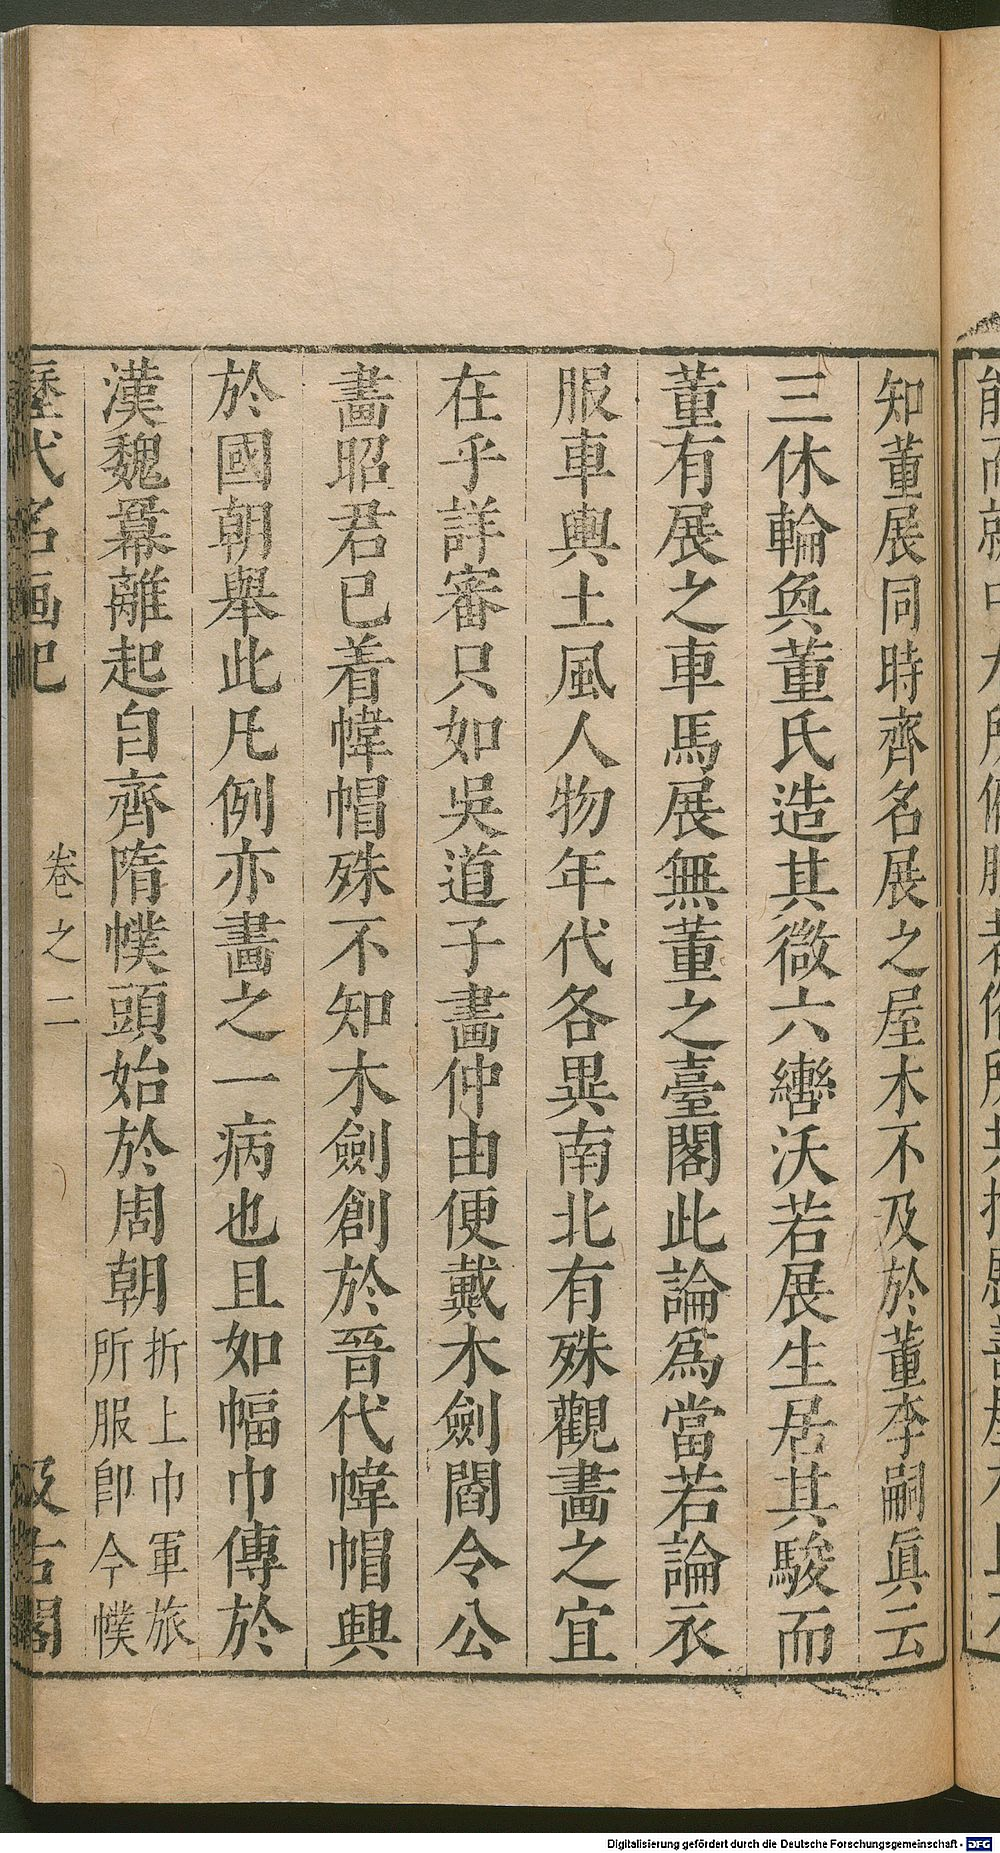 知董展同時齊名展之屋木不及於董李嗣眞云
三休輪奐董氏造其微六轡沃若展生居其駿而
董有展之車馬展無董之臺閣此論爲當若論衣
服車輿土風人物年代各異南北有殊觀畫之宜
在乎詳審只如吳道子畫仲由便戴木劍閻令公
畫昭君已着幃帽殊不知木劍創於晉代幃帽興
於國朝舉此凡例亦畫之一病也且如幅巾傳於
漢魏冪離起自齊隋幞頭始於周朝
折上巾軍旅
所服卽今幞
歷代名画記
卷之二
汲古閣
Digitalisierung gefördert durch die Deutsche Forschungsgemeinschaft - DFG